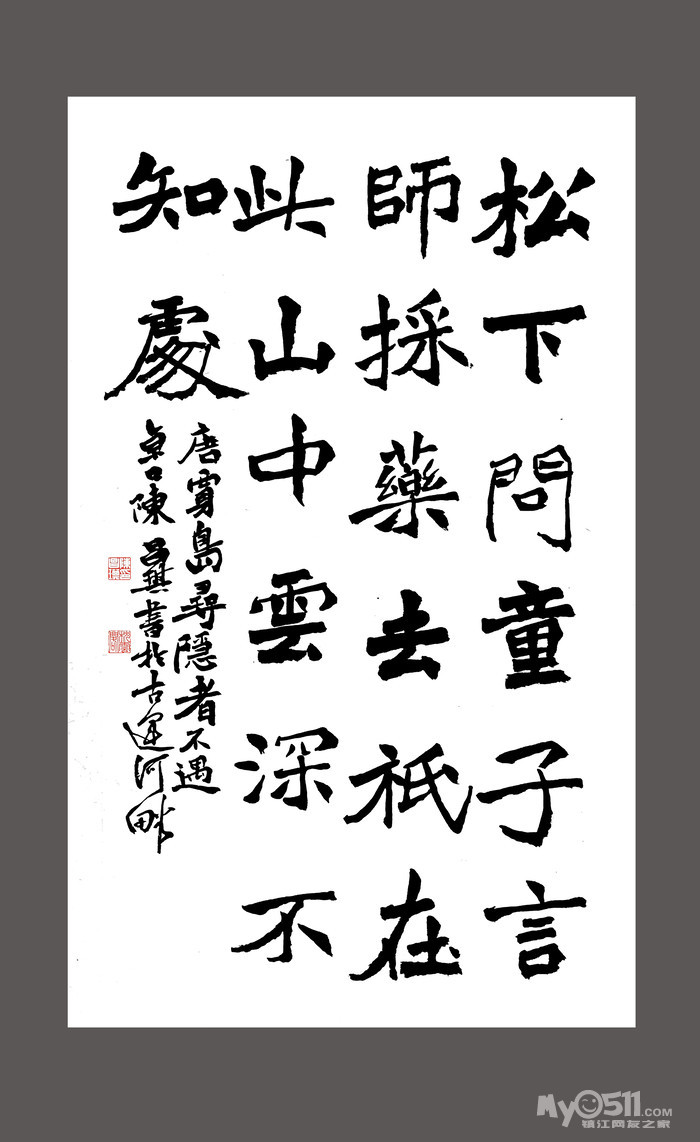 松下問童子言
師採藥去祇在
此山中雲深不
知處
唐賈島尋隱者不遇
京口陳書於古運河畔
My0511.com
镇江网友之家